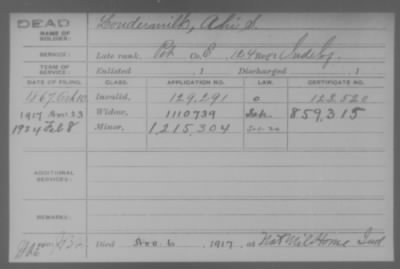 DEAD
NAME OF SOLDIER:
Loudermilk, S.
SERVICE:
Late rank, Pvt Co. 104 Ind. Inf
TERM OF SERVICE:
Enlisted 1 Discharged 1
DATE OF FILING. CLASS. APPLICATION NO. LAW. CERTIFICATE NO.
Invalid, 129,291 123,520
1917 23 Widow, 1110739 859,315
1924 Feb 8 Minor, 1,215,304
ADDITIONAL SERVICES:
REMARKS:
Died Nov. 6 1917, at Nat Mil Home Ind